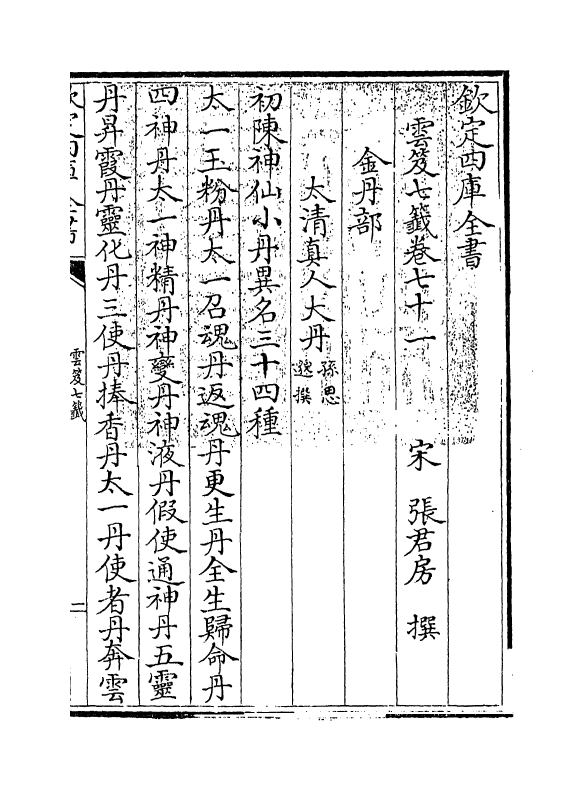 欽定四庫全書
雲笈七籤卷七十一　宋　張君房　撰
金丹部
太清真人大丹 孫思邈撰
初陳神仙小丹異名三十四種
太一玉粉丹太一召魂丹返魂丹更生丹全生歸命丹
四神丹太一神精丹神變丹神液丹假使通神丹五靈
丹昇霞丹靈化丹三使丹捧香丹太一丹使者丹奔雲
雲笈七籤